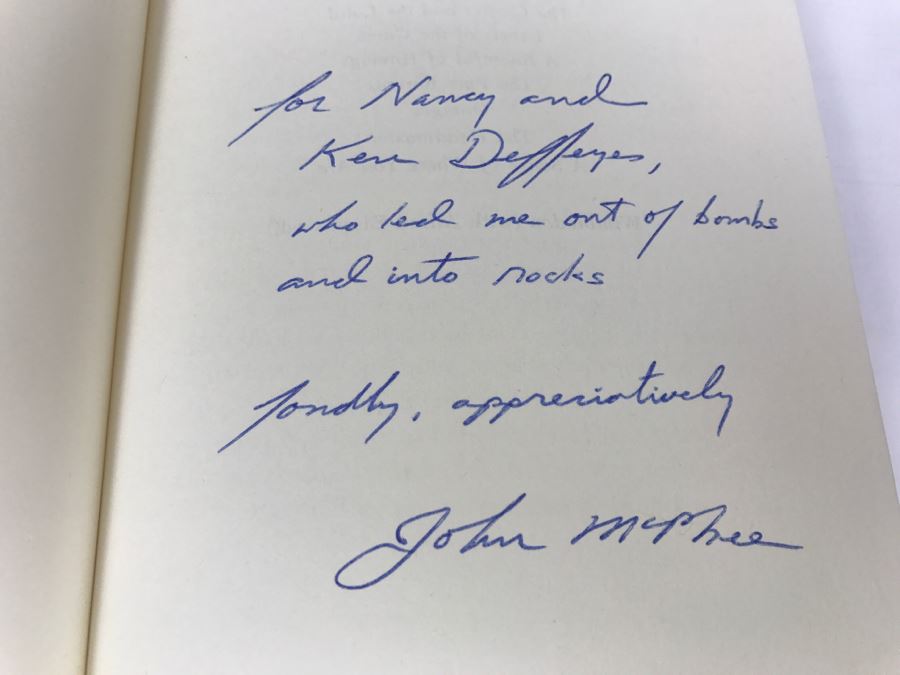 for Nancy and
Ken Deffeyes,
who led me out of bombs
and into rocks
fondly, appreciatively
John McPhee